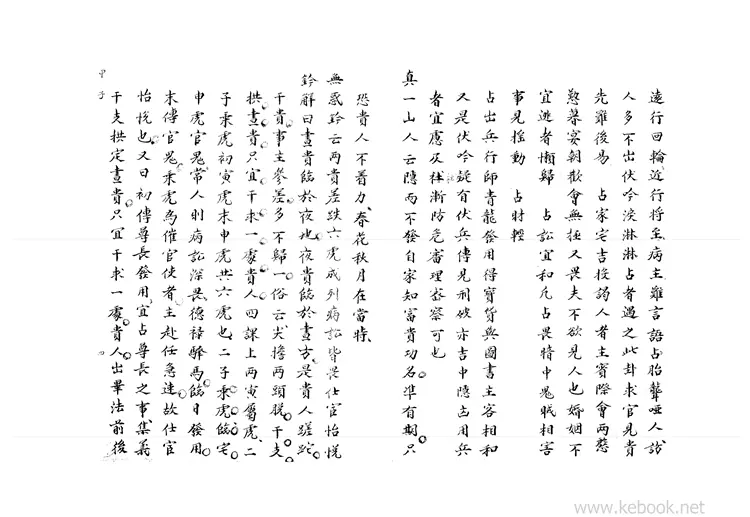 遠行回輪近行將至病主難言語占胎聾啞人訟
人多不出伏今淚淋淋占者遇之此卦求官見貴
先難後易　占家宅吉投謁人者主賓際會兩懸
懃慕宴朝歡會無極又畏夫不欲見人也婚姻不
宜逃者懶歸　占訟宜和凡占畏特中鬼賊相害
事見搖動　占財輕
占出兵行師青龍發用得寶貨與圖書主客相和
又是伏吟疑有伏兵傳見刑破亦吉中隱占用兵
者宜慮及林漸防危審理密察可也
真一山人云隱而不發自家知富貴功名準有期只
恐貴人不着力春花秋月在當時
無惑鈐云兩貴差跌六虎成列病訟皆畏仕宦怡悅
鈐解曰晝貴臨於夜地夜貴臨於晝方是貴人蹉跎
干貴事主參差多不歸一俗云尖擔兩頭脫干支
拱晝貴只宜干求一處貴人四課上兩寅屬虎二
子乘虎初寅虎末申虎共六虎也二子乘虎臨宅
申虎官鬼常人則病訟深畏德祿驛馬臨日發用
末傳官鬼乘虎為催官使者主赴任急速故仕宦
怡悅也又曰初傳尊長發用宜占尊長之事集義
干支拱定晝貴只宜干求一處貴人出畢法前後
甲子
www.kebook.net